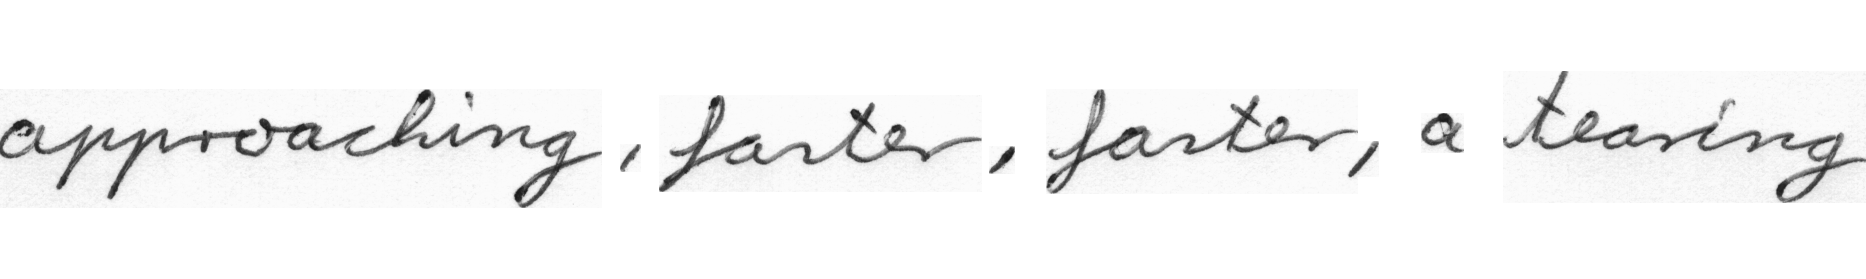 approaching, faster, faster, a tearing